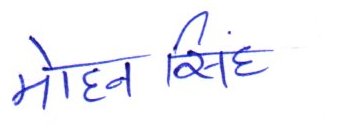 मोहन सिंह